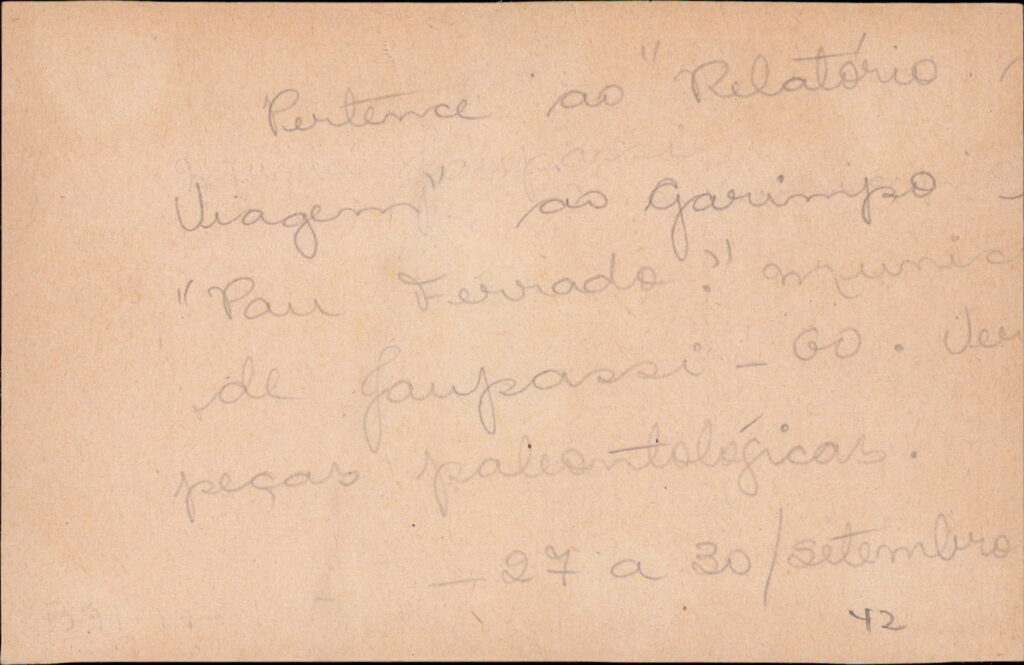 Pertence ao "Relatório
Viagem" ao Garimpo -
"Pau Ferrado." Munic
de Jaupassi - GO. Ver
peças paleontológicas.
- 27 a 30/setembro
42